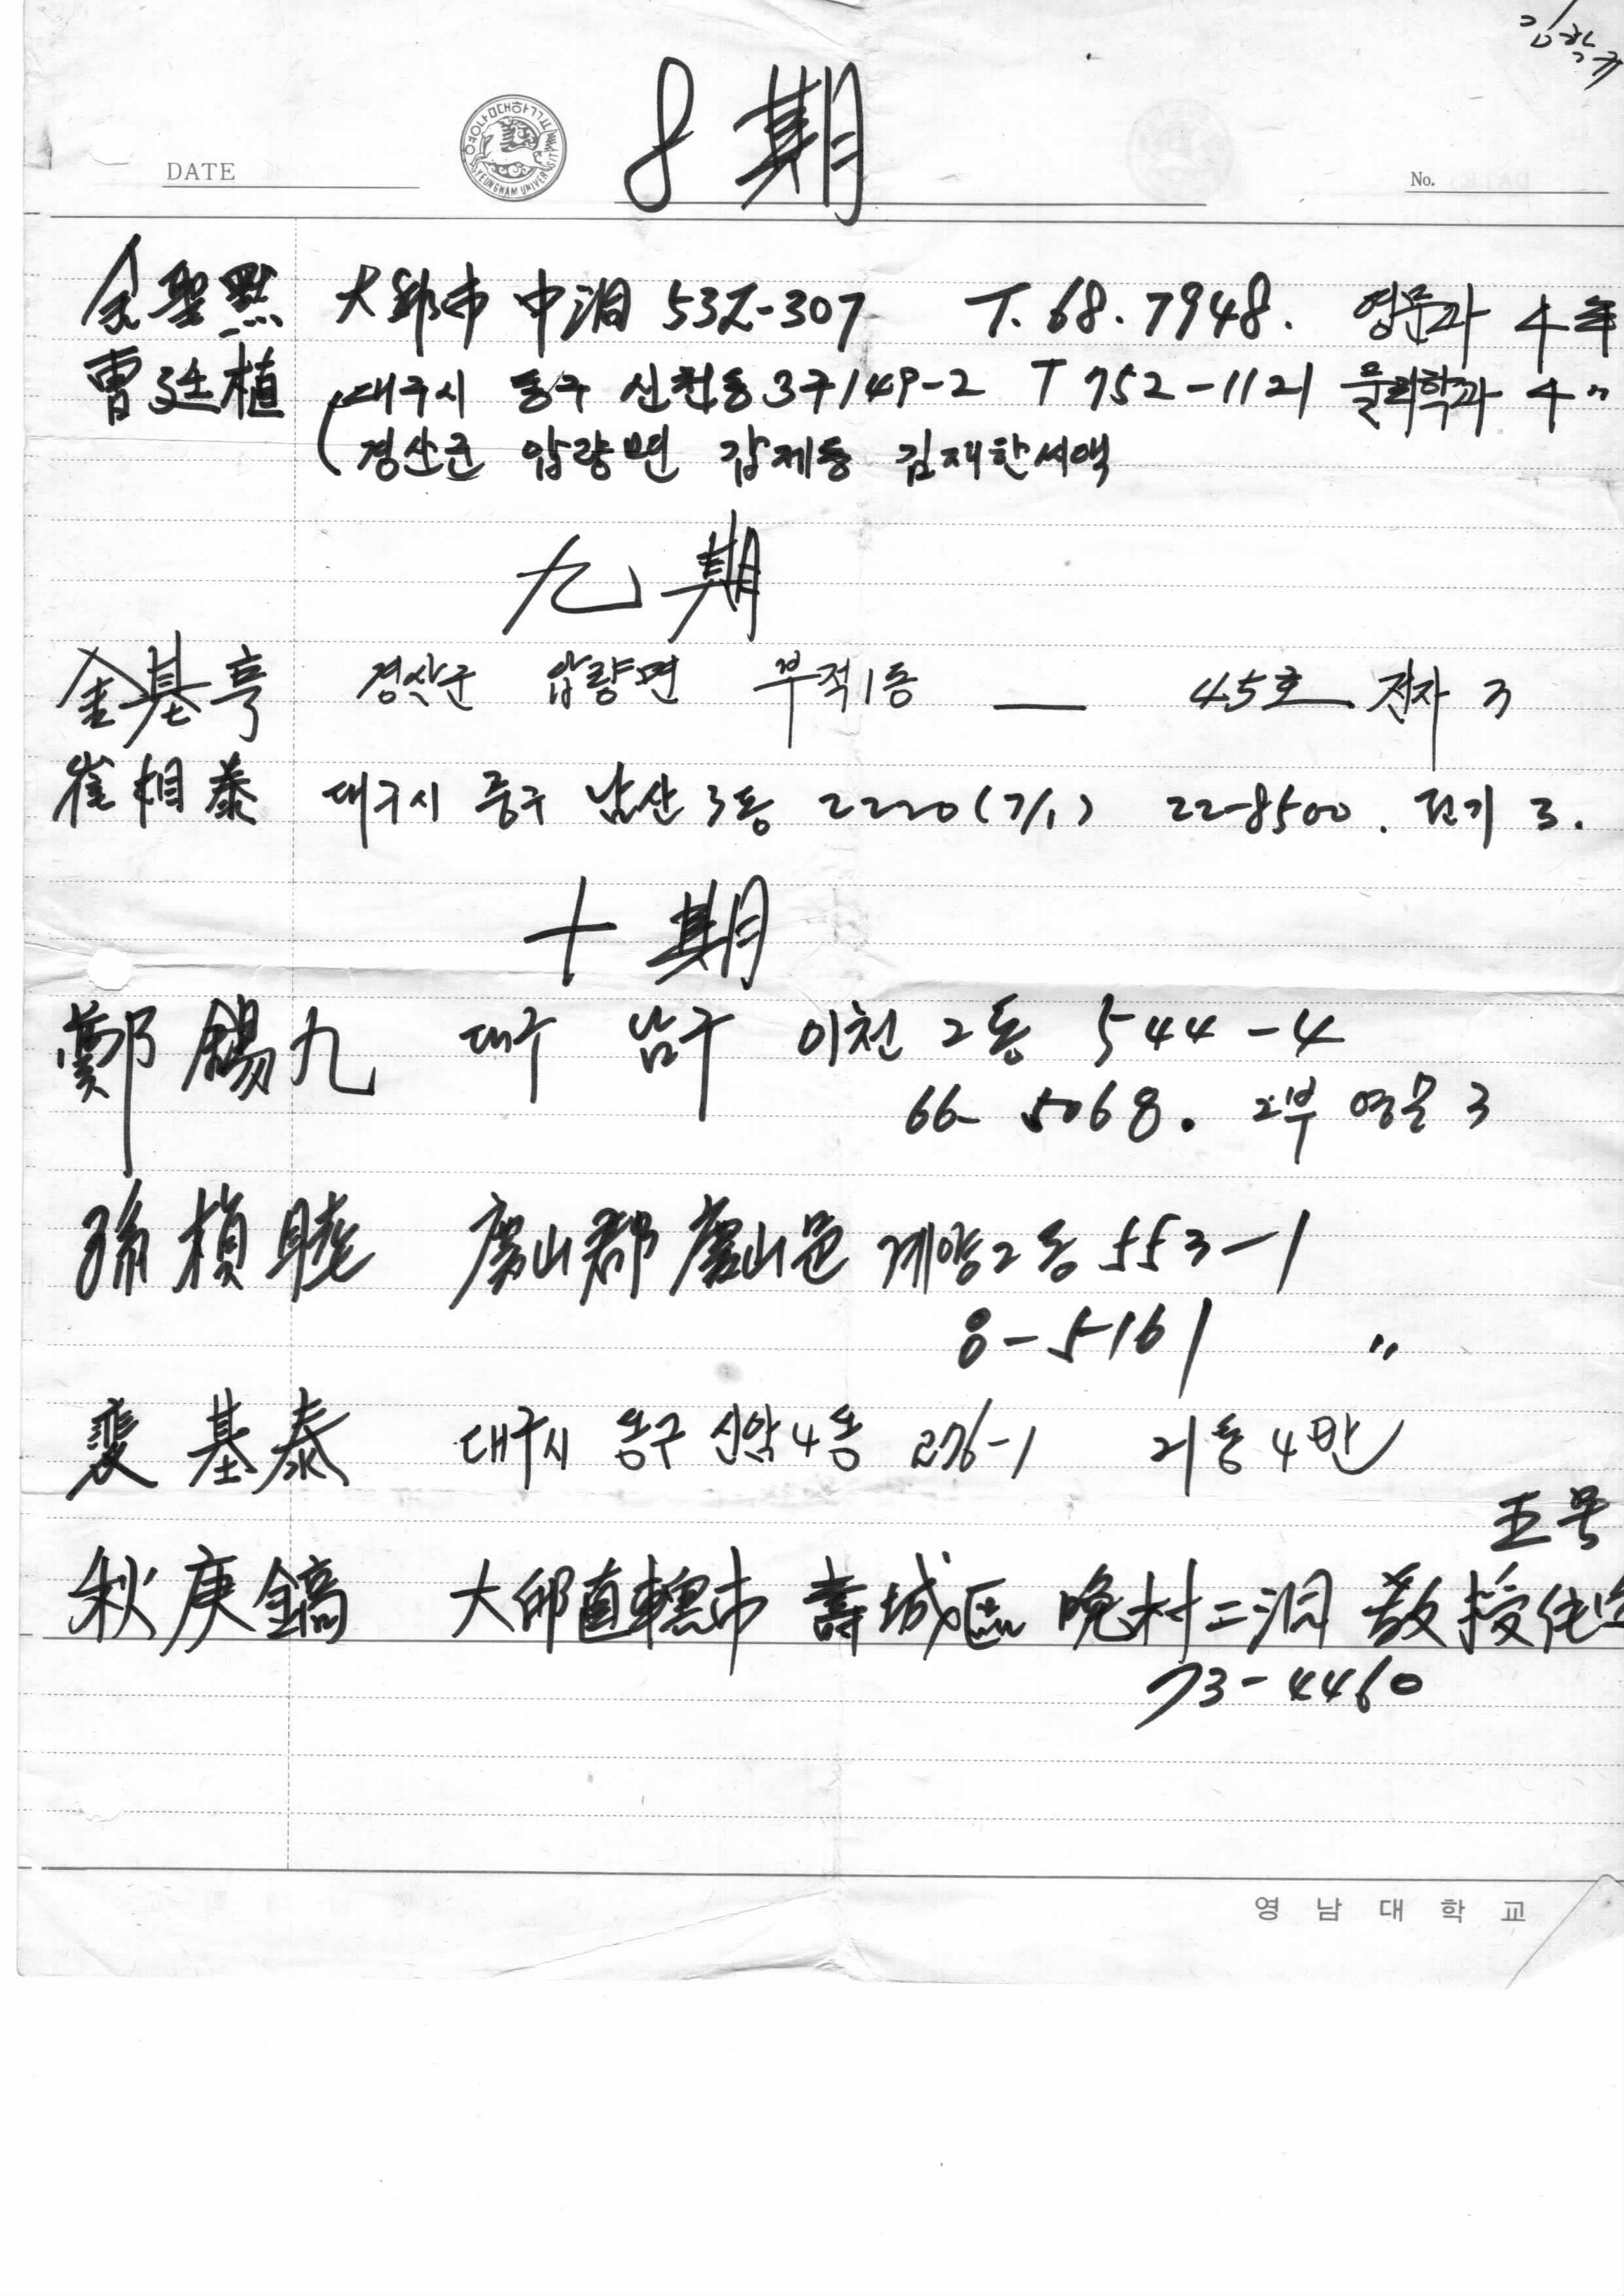 김학규
8期
DATE
영남대학교 YEUNGNAM UNIVERSITY
No.
金聖點 大邱市 中洞 532-307 T. 68.7948. 영문과 4年
曺廷植 대구시 동구 신천동3구149-2 T 752-1121 물리학과 4〃
경산군 압량면 갑제동 김재한씨댁
九期
金基亨 경산군 압량면 부적1동 — 45호 전자 3
崔相泰 대구시 중구 남산3동 2220(7/1) 22-8500. 전기 3.
十期
鄭錫九 대구 남구 이천2동 544-4
66-5068. 2부 영문 3
孫楨睦 慶山郡 慶山邑 계양2동 553-1
8-5161 〃
裵基泰 대구시 동구 신암4동 276-1 기동4반
五号
秋庚鎬 大邱直轄市 壽城區 晩村二洞 敎授住宅
73-4460
영남대학교